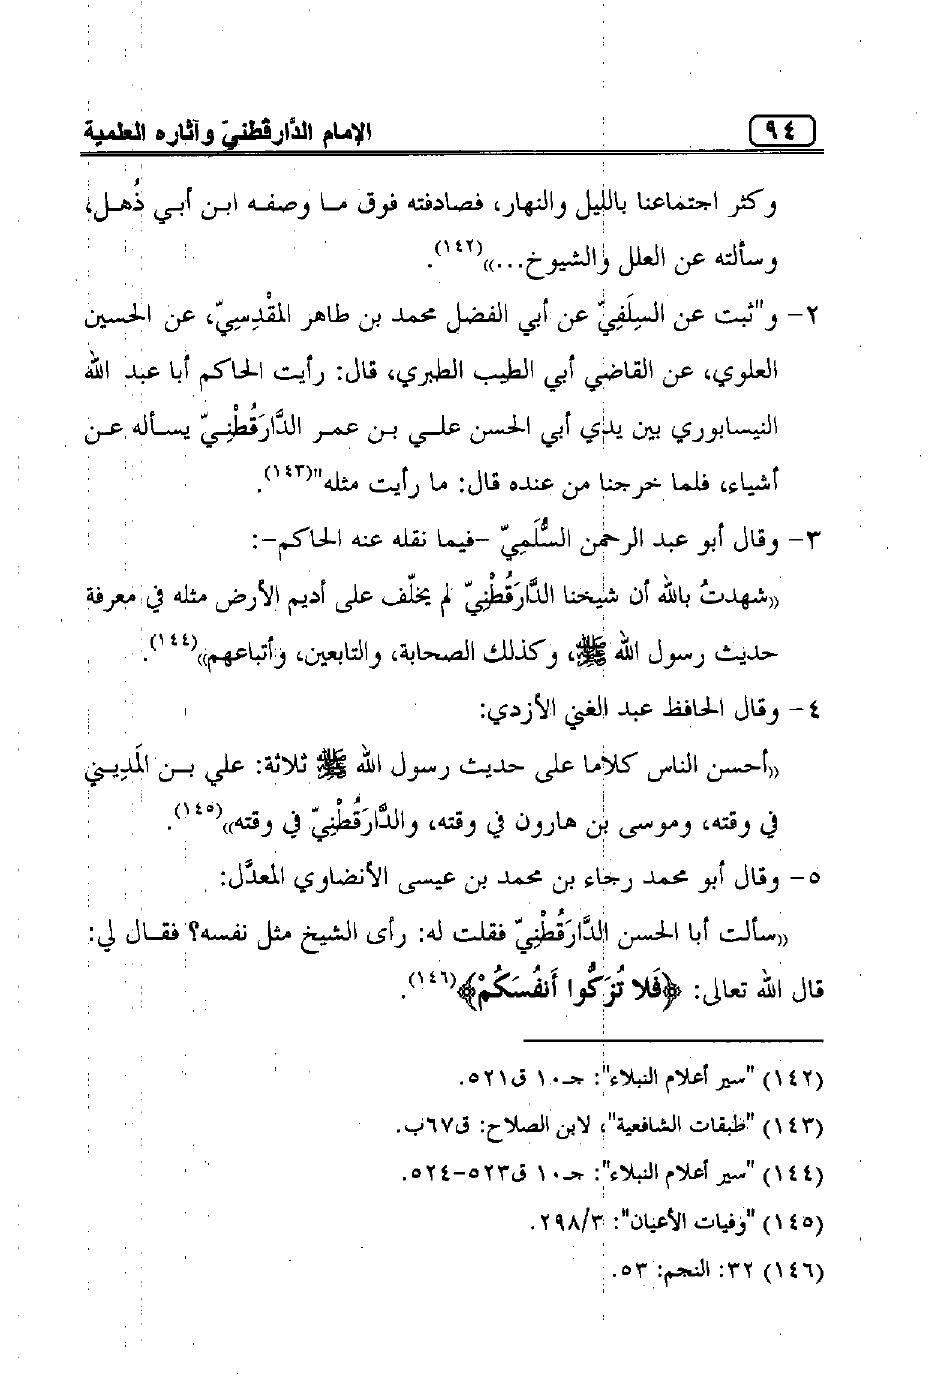 ٩٤
الإمام الدَّارقطنيّ وآثاره العلمية
وكثر اجتماعنا بالليل والنهار، فصادفته فوق ما وصفه ابن أبي ذُهل،
وسألته عن العلل والشيوخ...»(١٤٢).
٢- و"ثبت عن السِلَفِيّ عن أبي الفضل محمد بن طاهر المقْدِسِيّ، عن الحسين
العلوي، عن القاضي أبي الطيب الطبري، قال: رأيت الحاكم أبا عبد الله
النيسابوري بين يدي أبي الحسن علي بن عمر الدَّارَقُطْنِيّ يسأله عن
أشياء، فلما خرجنا من عنده قال: ما رأيت مثله"(١٤٣).
٣- وقال أبو عبد الرحمن السُّلَمِيّ -فيما نقله عنه الحاكم-:
«شهدتُ بالله أن شيخنا الدَّارَقُطْنِيّ لم يخلّف على أديم الأرض مثله في معرفة
حديث رسول الله ﷺ، وكذلك الصحابة، والتابعين، وأتباعهم»(١٤٤).
٤- وقال الحافظ عبد الغني الأزدي:
«أحسن الناس كلاما على حديث رسول الله ﷺ ثلاثة: علي بن المَدِيني
في وقته، وموسى بن هارون في وقته، والدَّارَقُطْنِيّ في وقته»(١٤٥).
٥- وقال أبو محمد رجاء بن محمد بن عيسى الأنضاوي المعدَّل:
«سألت أبا الحسن الدَّارَقُطْنِيّ فقلت له: رأى الشيخ مثل نفسه؟ فقال لي:
قال الله تعالى: ﴿فَلا تُزَكُّوا أَنفُسَكُمْ﴾(١٤٦).
(١٤٢) "سير أعلام النبلاء": جـ١٠ ق٥٢١.
(١٤٣) "طبقات الشافعية"، لابن الصلاح: ق٦٧ب.
(١٤٤) "سير أعلام النبلاء": جـ١٠ ق٥٢٣-٥٢٤.
(١٤٥) "وفيات الأعيان": ٢٩٨/٣.
(١٤٦) ٣٢: النجم: ٥٣.